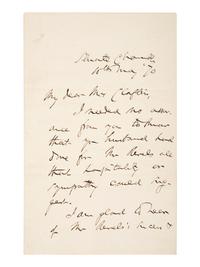 Senate Chamber
10th May '70
My dear Mrs Claflin,
I needed no assu-
ance from you to know
that you husband had
done for Mr Revels all
that hospitality or
sympathy could sug-
gest.
I am glad to hear
of Mr Revels's success